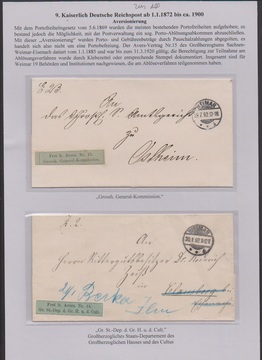 9. Kaiserlich Deutsche Reichspost ab 1.1.1872 bis ca. 1900
Aversionierung
Mit dem Portofreiheitsgesetz vom 5.6.1869 wurden die meisten bestehenden Portofreiheiten aufgehoben; es
bestand jedoch die Möglichkeit, mit der Postverwaltung ein sog. Porto-Ablösungsabkommen abzuschließen.
Mit dieser „Aversionierung“ wurden Porto- und Gebührenbeträge durch Pauschalzahlungen abgegolten, es
handelt sich also nicht um eine Portobefreiung. Der Avers-Vertrag Nr.15 des Großherzogtums Sachsen-
Weimar-Eisenach datiert vom 1.1.1885 und war bis zum 31.3.1920 gültig; die Berechtigung zur Teilnahme am
Ablösungsverfahren wurde durch Klebezettel oder entsprechende Stempel dokumentiert. Insgesamt sind für
Weimar 19 Behörden und Institutionen nachgewiesen, die am Ablösungsverfahren teilgenommen haben.
An
WEIMAR
zu
Ostheim.
Frei lt. Avers. Nr. 15.
Grossh. General-Kommission.
„Grossh. General-Kommission.“
An
WEIMAR
Frei lt. Avers. Nr. 15.
Gr. St.-Dep. d. Gr. H. u. d. Cult.
Berka
Ilm
„Gr. St.-Dep. d. Gr. H. u. d. Cult.“
Großherzogliches Staats-Departement des
Großherzoglichen Hauses und des Cultus